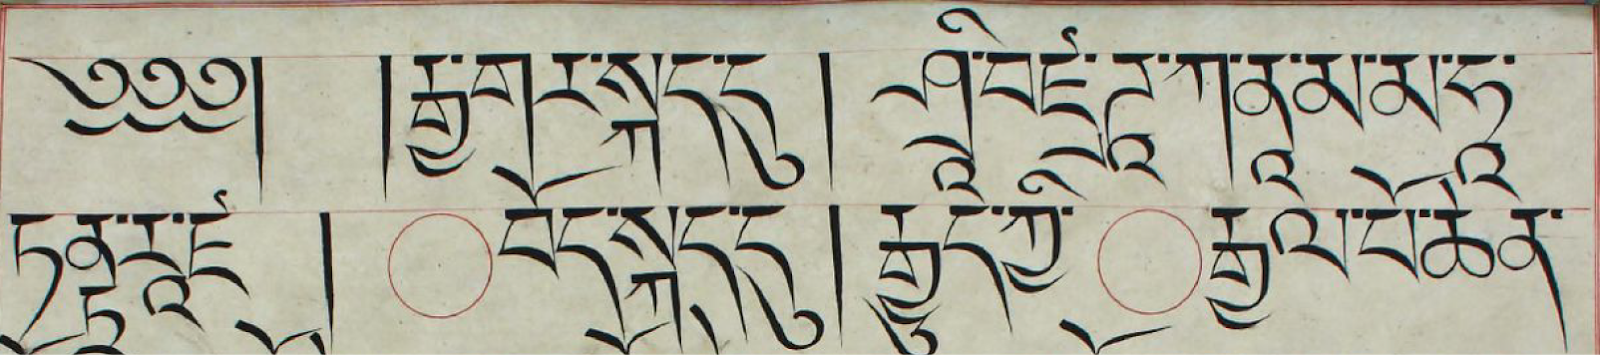 ༄༅༅། །རྒྱ་གར་སྐད་དུ། ཤྲཱི་བཛྲ་ཌཱ་ཀ་ནཱ་མ་མ་ཧཱ་
ཏནྟྲ་རཱ་ཛ། བོད་སྐད་དུ། རྒྱུད་ཀྱི་རྒྱལ་པོ་ཆེན་